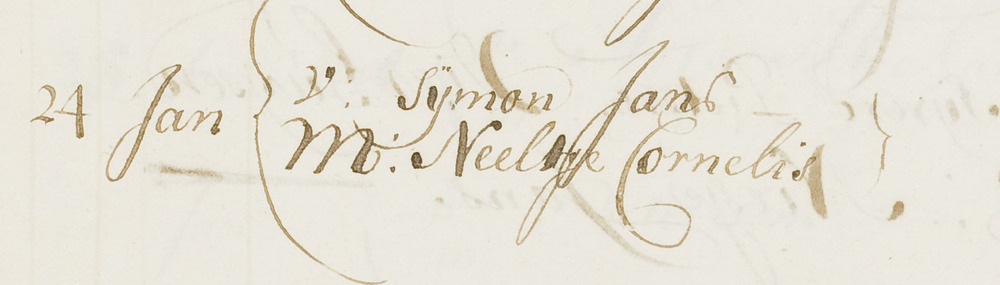 24 Jan { V: Sÿmon Jans
M: Neeltje Cornelis }